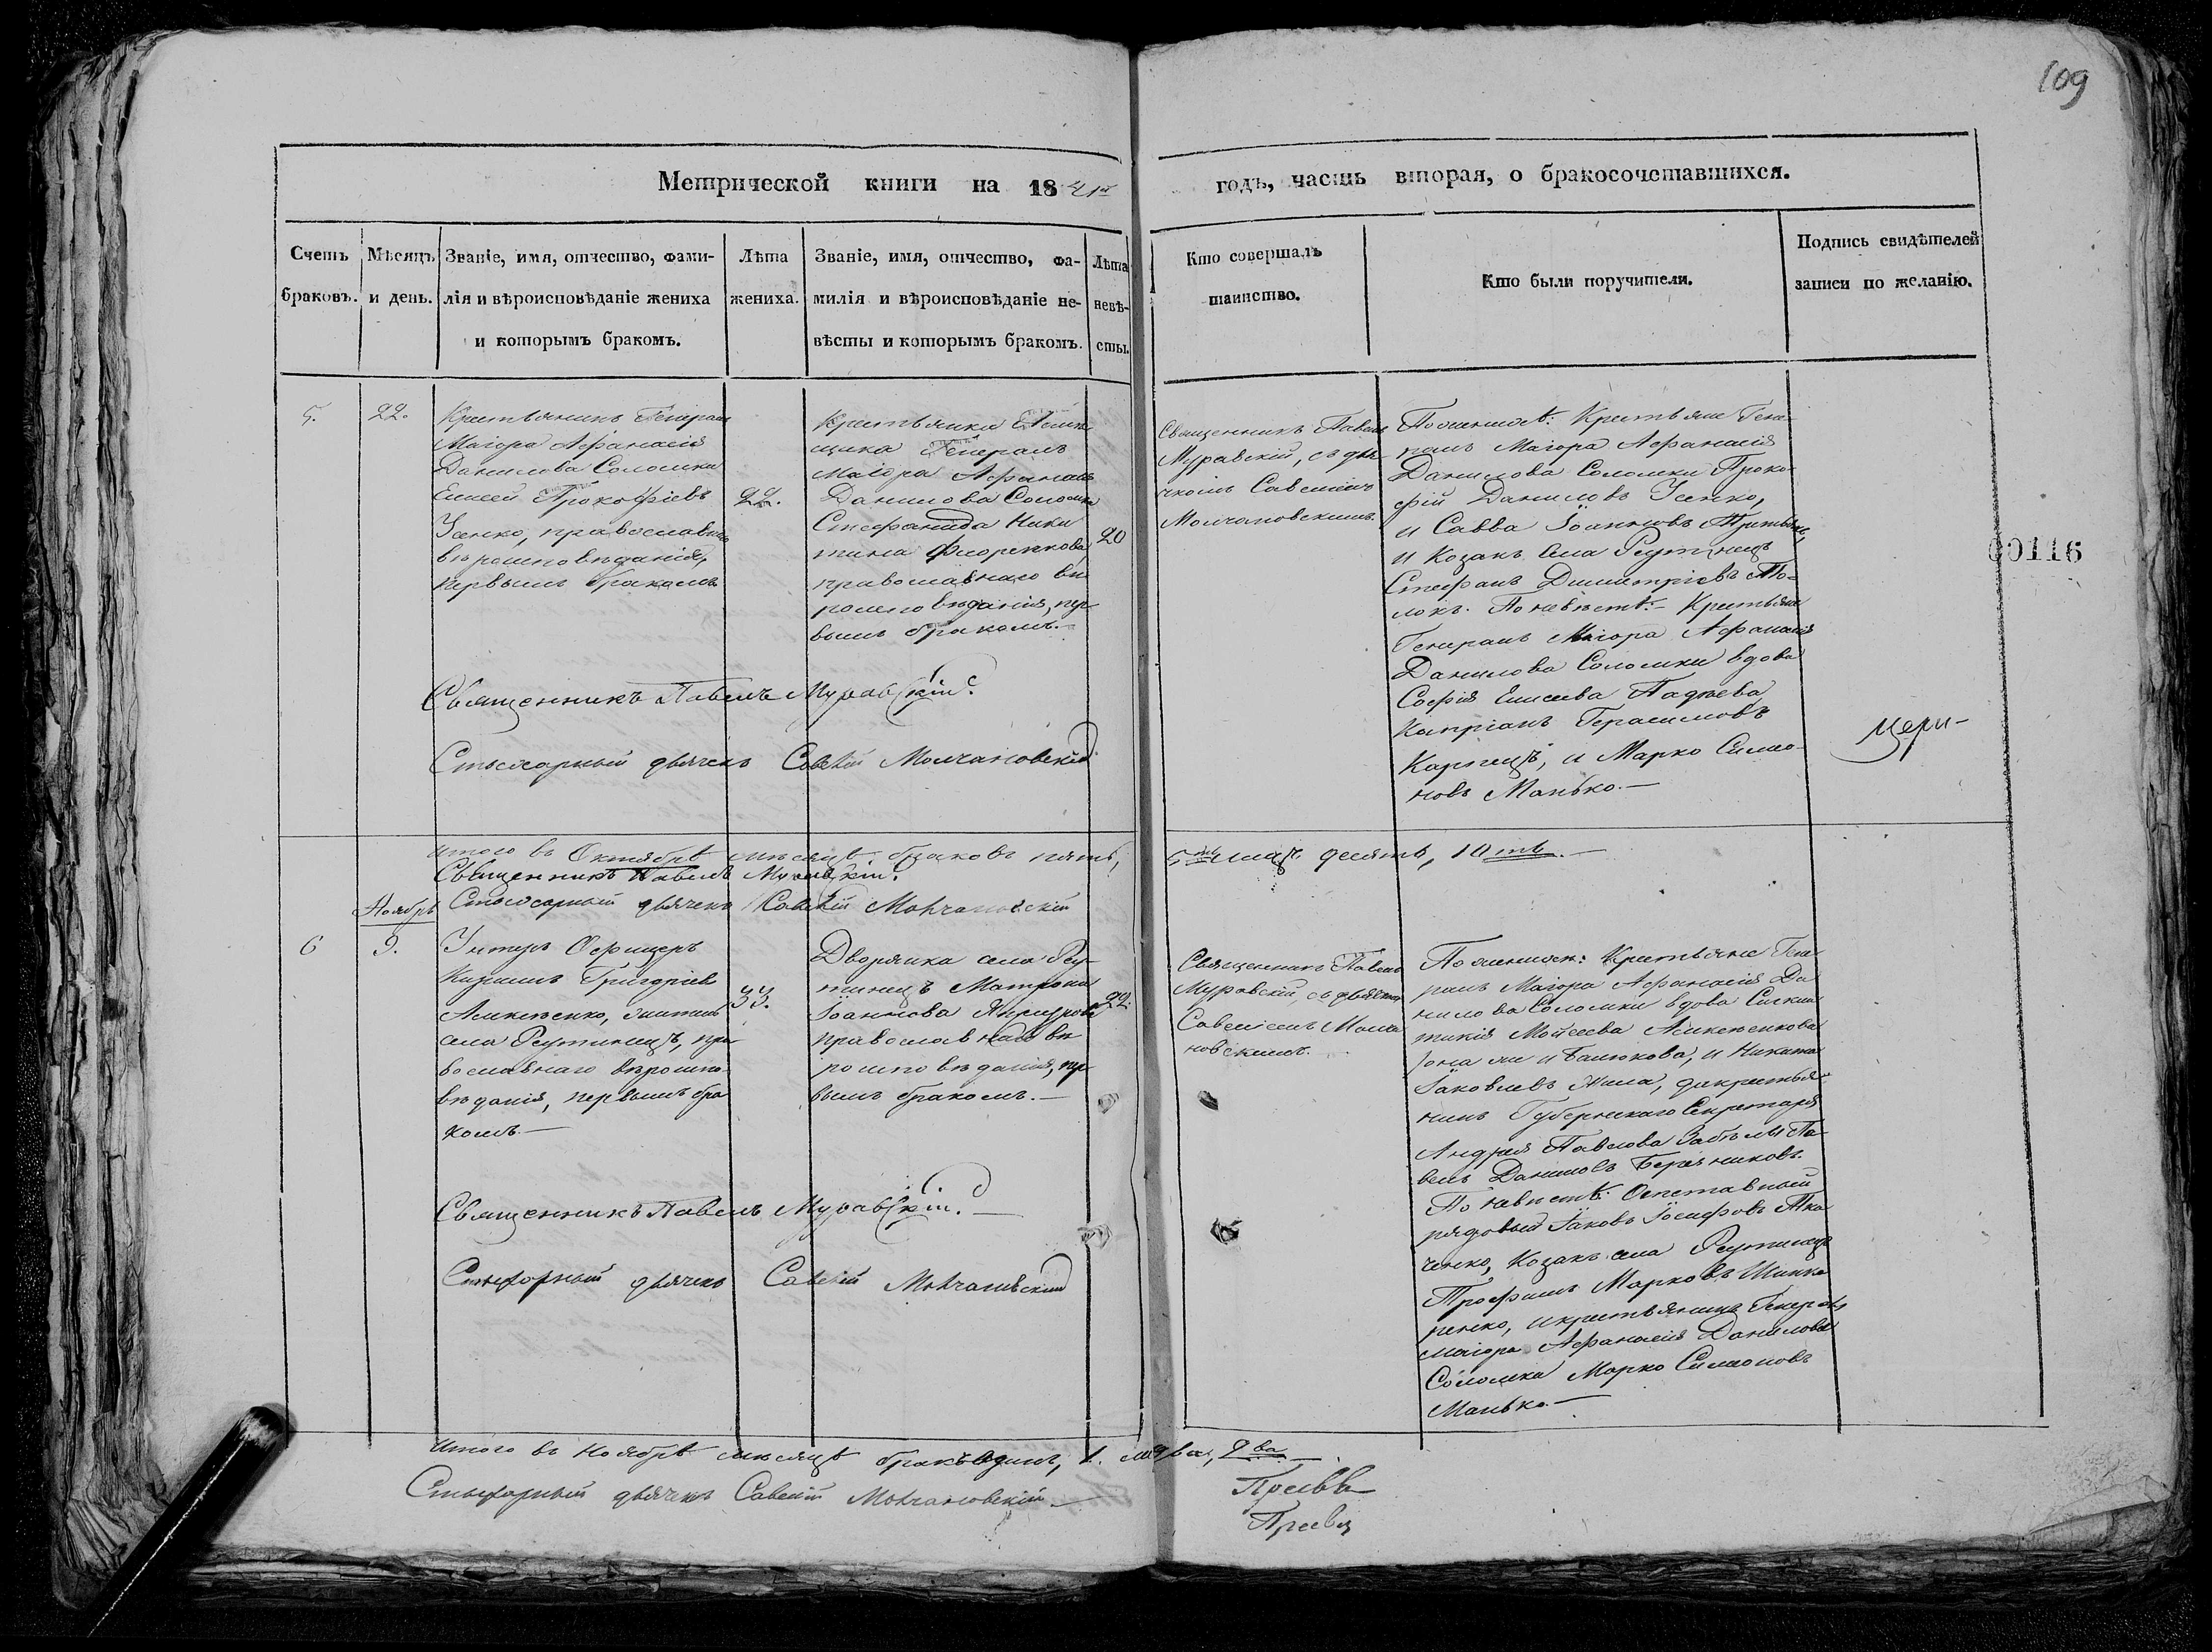 109
Метрической книги на 1841й годъ, часть вторая, о бракосочетавшихся.
Счетъ
браковъ.
Мѣсяцъ
и день.
Званіе, имя, отчество, фами-
лія и вѣроисповѣданіе жениха
и которымъ бракомъ.
Лѣта
жениха.
Званіе, имя, отчество, фа-
милія и вѣроисповѣданіе не-
вѣсты и которымъ бракомъ.
Лѣта
невѣ-
сты.
Кто совершалъ
таинство.
Кто были поручители.
Подпись свидѣтелей
записи по желанію.
5.
22.
Крестьянинъ Генералъ
Маіора Афанасія
Данилова Соломки
Елисей Прокофіевъ
Усенко, православнаго
вѣроисповѣданія,
первымъ бракомъ
22.
Крестьянка
Генералъ
Маіора Афанасія
Данилова Соломки
Стефанида Ники
тина Флоренкова
православнаго вѣ
роисповѣданія, пер
вымъ бракомъ.
20
Священникъ Павелъ
Муравскій, съ дья
чкомъ Савеліемъ
Молчановскимъ.
По женихѣ: Крестьяне Гене
ралъ Маіора Афанасія
Данилова Соломки Проко
фій Даниловъ Усенко,
и Савва Іоанновъ
и Козакъ села Реутинецъ
Стефанъ Димитріевъ
По невѣстѣ: Крестьяне
Генералъ Маіора Афанасія
Данилова Соломки вдова
Софія Елисеева
Кипріанъ Герасимовъ
Карпецъ, и Марко Симо
новъ Манько.
Священникъ Павелъ Муравскій.
Стихарный дьячекъ Савелій Молчановскій
Цери-
00116
Итого въ Октябрѣ мѣсяцѣ браковъ пять, 5ть лицъ десять, 10ть.
Священникъ Павелъ Муравскій.
Стихарный дьячекъ Савелій Молчановскій
6
Ноябрь
9.
Унтеръ Офицеръ
Кирилъ Григоріевъ
Алексѣенко, житель
села Реутинецъ, пра
вославнаго вѣроиспо
вѣданія, первымъ бра
комъ.
33.
Дворянка села Реу-
тинецъ Матрона
Іоаннова
православнаго вѣ
роисповѣданія, пер
вымъ бракомъ.
22.
Священникъ Павелъ
Муравскій, съ дьячкомъ
Савеліемъ Молча
новскимъ.
По женихѣ: Крестьяне Гене
ралъ Маіора Афанасія Да
нилова Соломки вдова
Моисеева Алексѣенкова
она же и и Никита
Іаковлевъ Жила, да крестья
нинъ Губернскаго Секретаря
Андрея Павлова Забѣлы Па
велъ Даниловъ
По невѣстѣ: Отставный
рядовый Іаковъ Іосифовъ Тка
ченко, Козакъ села Реутинецъ
Трофимъ Марковъ Шинка
ренко, и крестьянинъ Генералъ
Маіора Афанасія Данилова
Соломка Марко Симоновъ
Манько.
Священникъ Павелъ Муравскій.
Стихарный дьячекъ Савелій Молчановскій
Итого въ Ноябрѣ мѣсяцѣ бракъ одинъ, 1. два, 2ва.
Стихарный дьячекъ Савелій Молчановскій